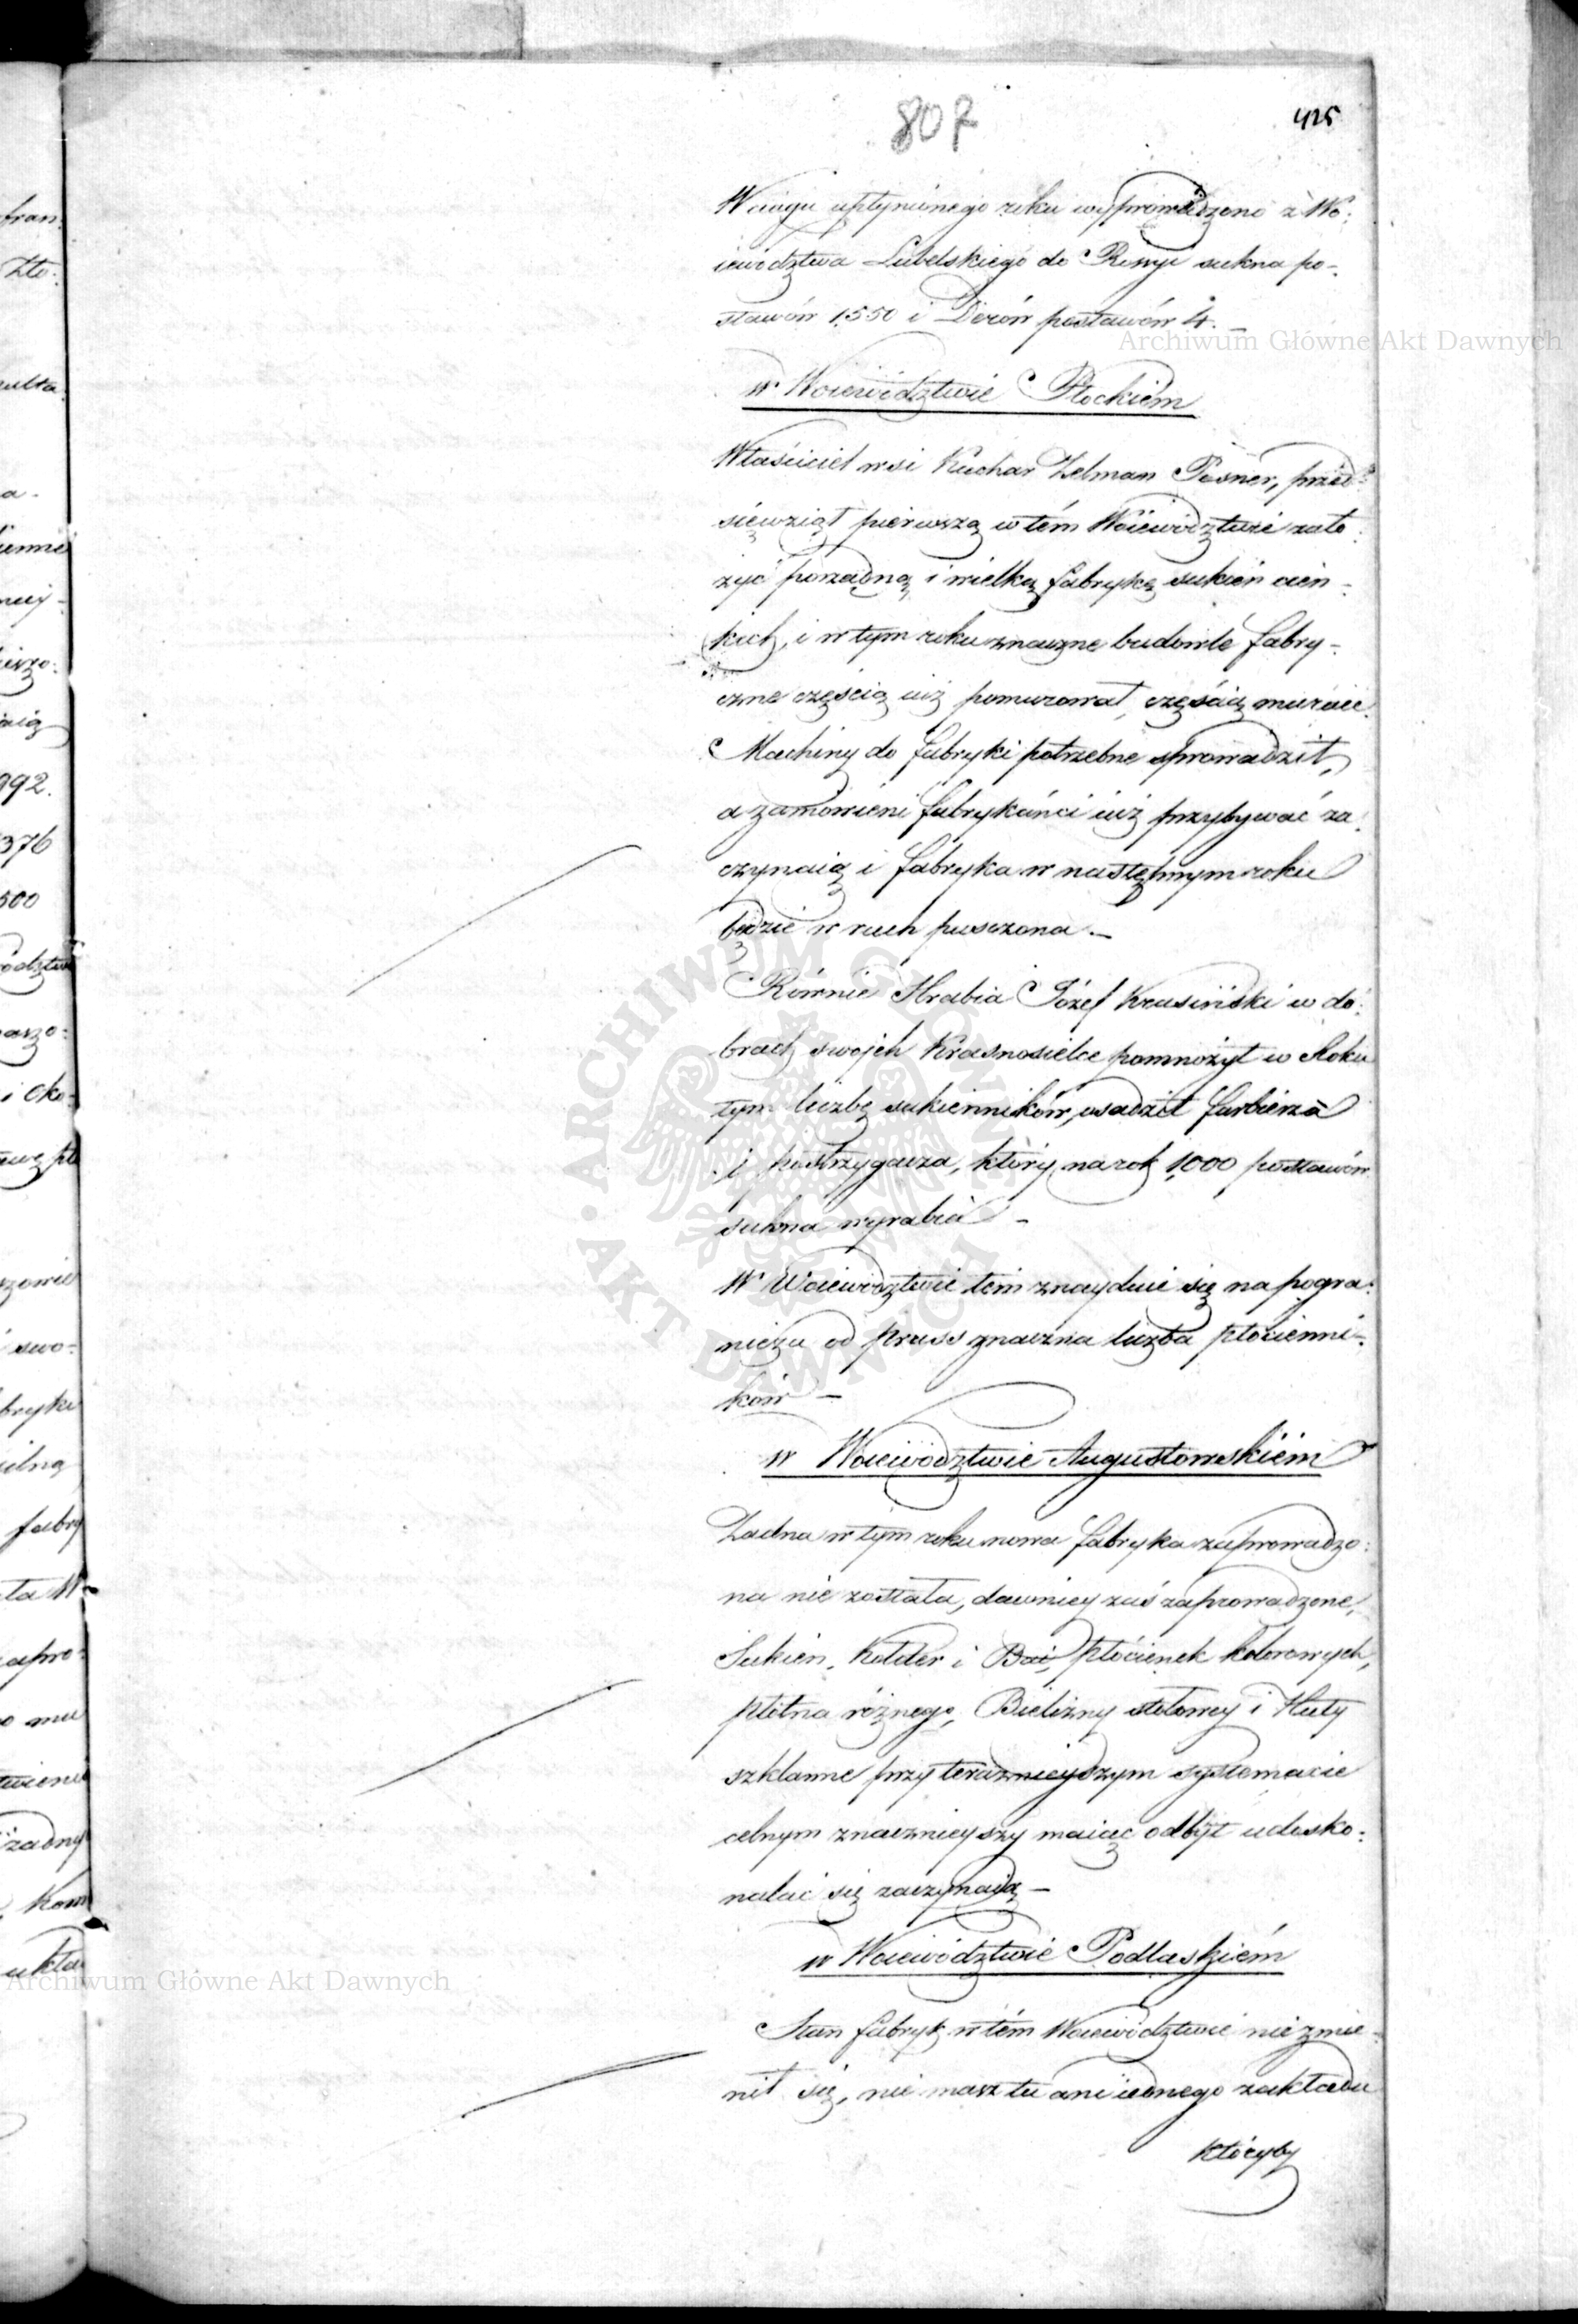 807
425
W ciągu upłynionego roku wyprowadzono z Wo:
iewództwa Lubelskiego do Rossyi sukna po-
stawów 1,550 i Derów postawów 4. –
Archiwum Główne Akt Dawnych
w Woiewództwie Płockiém
Właściciel wsi Kuchar Zelman Posner, przed-
sięwziął pierwszą w tém Woiewództwie zało:
żyć porządną i wielką fabrykę sukien cien-
kich, i w tym roku znaczne budowle fabry-
czne częścią iuż pomurował, częścią muruie.
Machiny do fabryki potrzebne sprowadził,
a zamówieni fabrykanci iuż przybywać za:
czynaią i fabryka w następnym roku
będzie w ruch pusczona –
Równie Hrabia Józef Krasiński w do:
brach swoich Krasnosielce pomnożył w Roku
tym liczbę sukienników, osadził farbierza
i postrzygacza, który na rok 1,000 postawów
sukna wyrabia –
W Woiewództwie tém znayduie się na pogra:
niczu od Pruss znaczna liczba płócienni-
ków –
w Woiewództwie Augustowskiém
Żadna w tym roku nowa fabryka zaprowadzo:
na nie została, dawniey zaś zaprowadzone,
Sukien, Kołder i Boi, płócienek kolorowych,
płótna różnego, Bielizny stołowey i Huty
szklanne przy teraznieyszym systemacie
celnym znacznieyszy maiąc odbyt udosko:
nalać się zaczynaią –
w Woiewództwie Podlaskiém
Stan fabryk w tém Woiewództwie nie zmie-
nił się, nie masz tu ani iednego zakładu
któryby
Archiwum Główne Akt Dawnych
ARCHIWUM GŁÓWNE AKT DAWNYCH